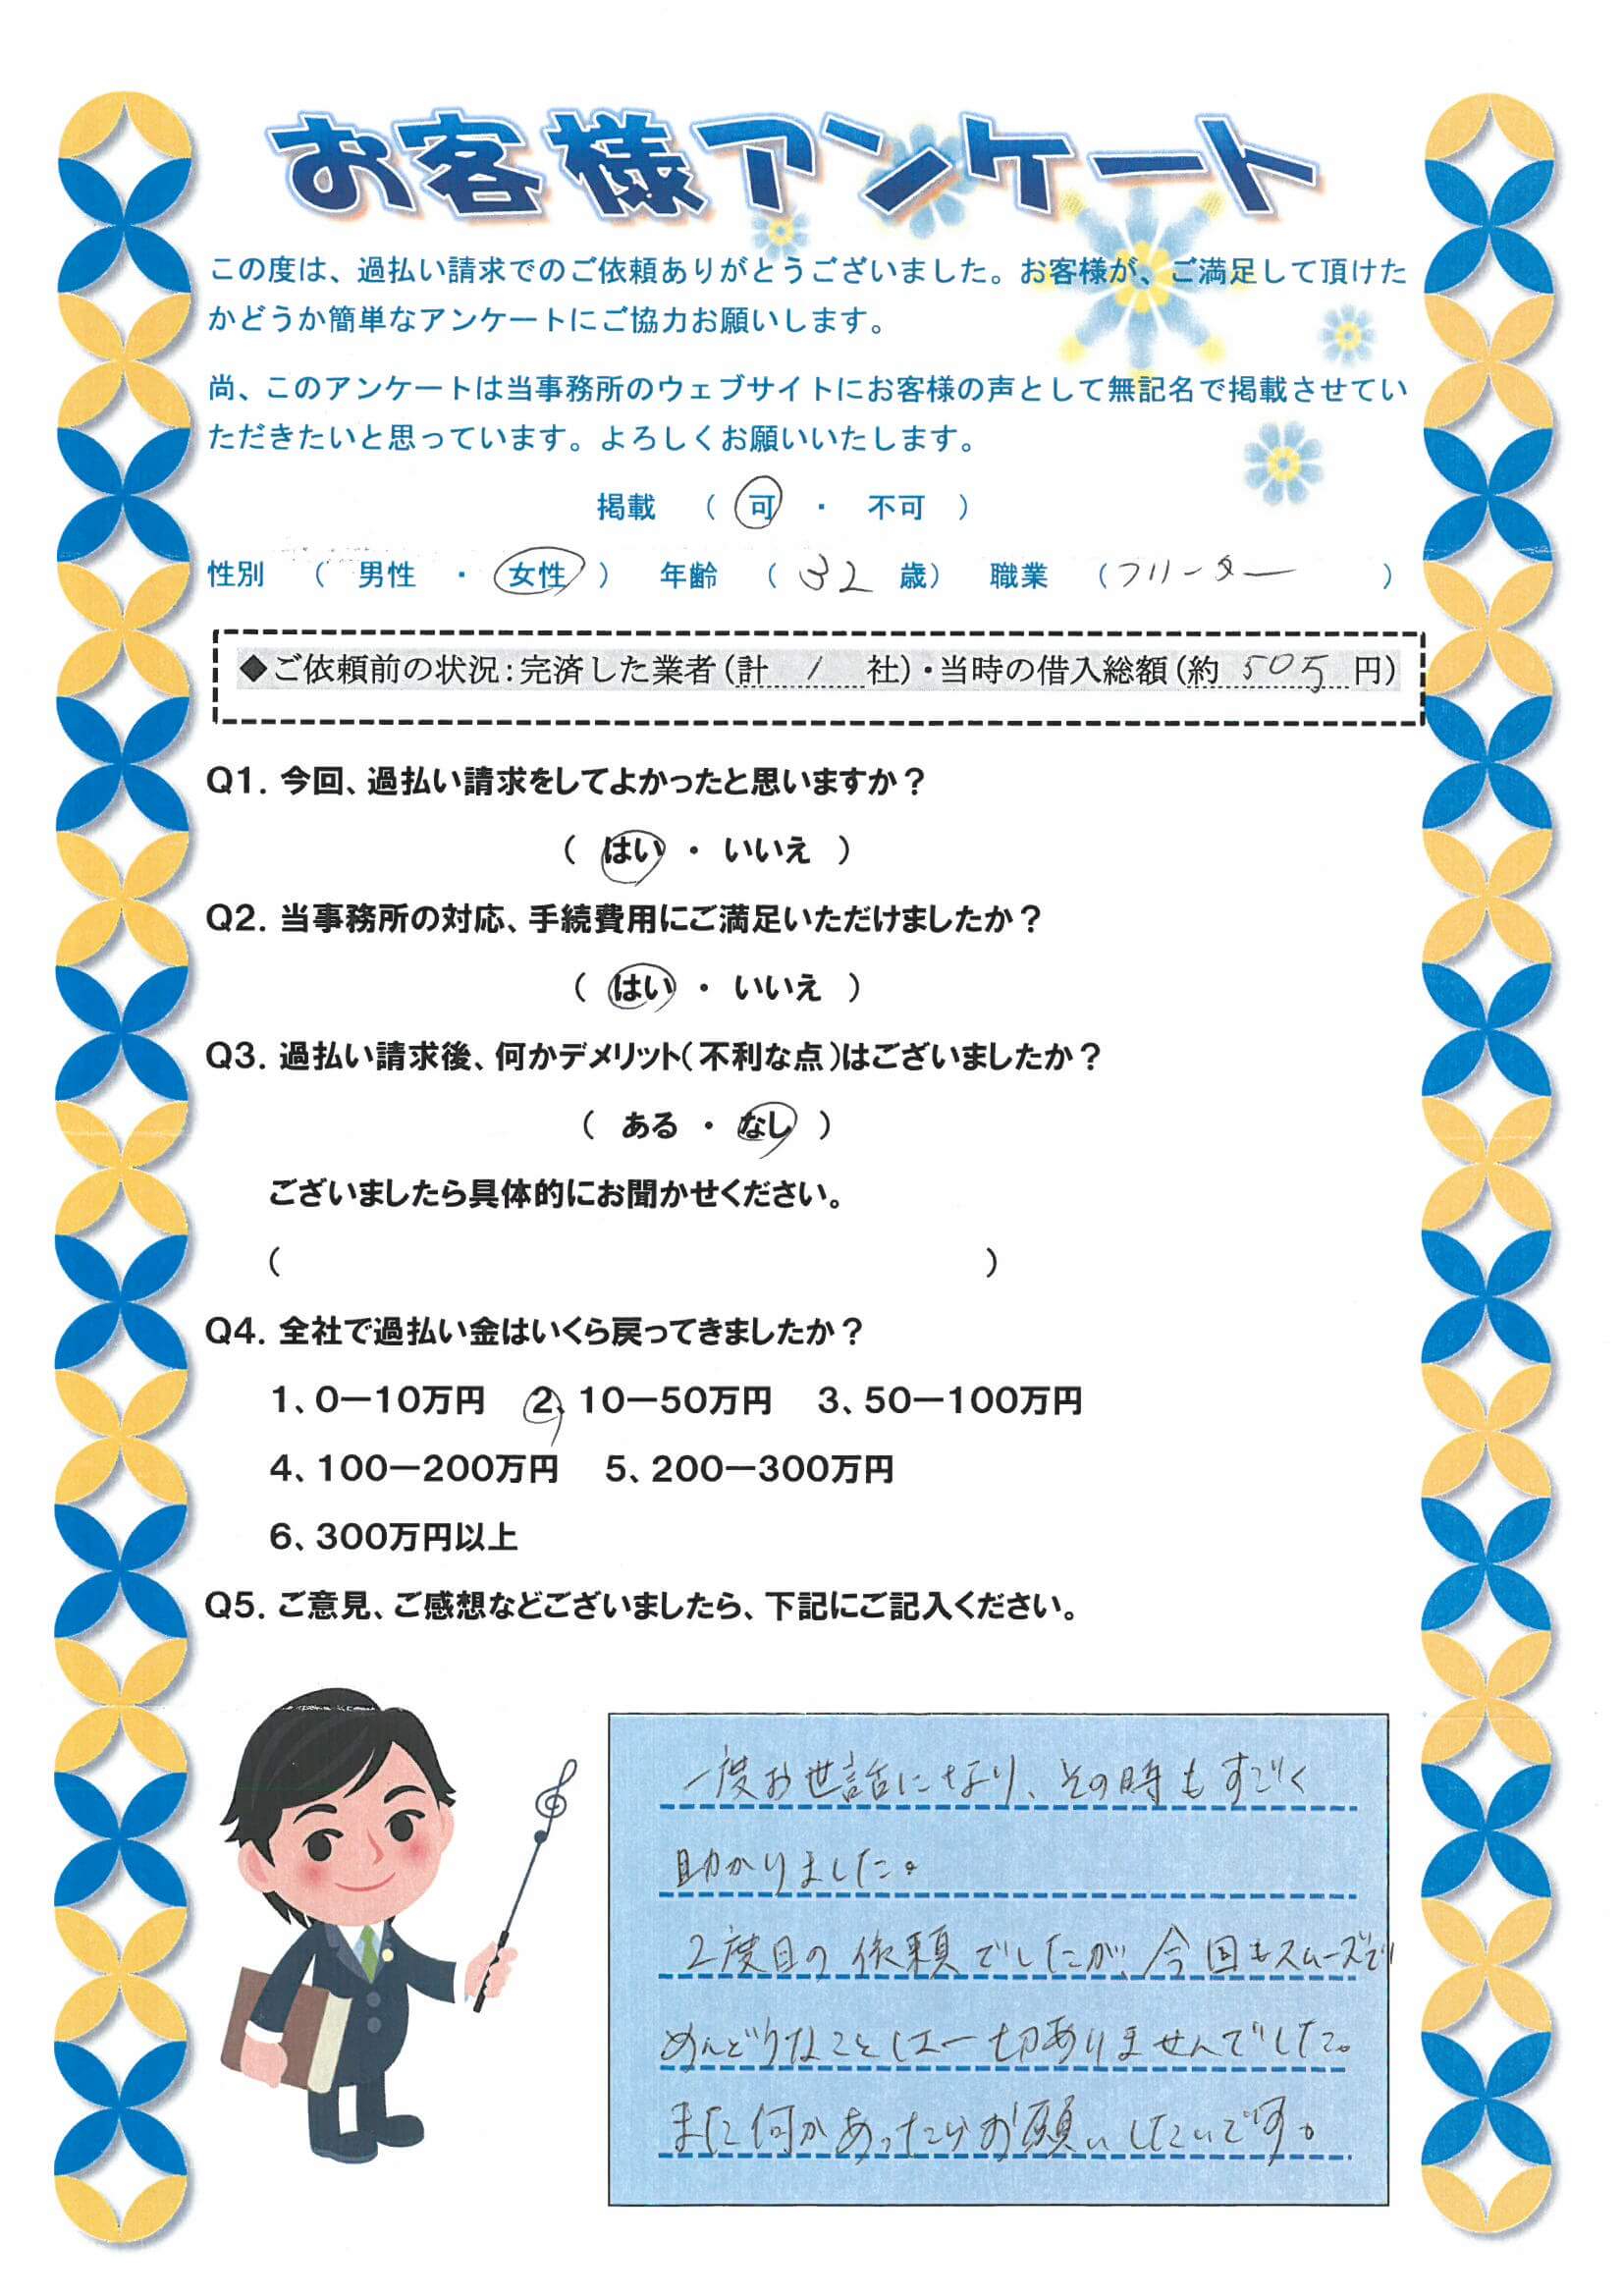 お客様アンケート
この度は、過払い請求でのご依頼ありがとうございました。お客様が、ご満足して頂けた
かどうか簡単なアンケートにご協力お願いします。
尚、このアンケートは当事務所のウェブサイトにお客様の声として無記名で掲載させてい
ただきたいと思っています。よろしくお願いいたします。
掲載 （ 可 ・ 不可 ）
性別 （ 男性 ・ 女性 ） 年齢 （ 32 歳） 職業 （フリーター ）
◆ご依頼前の状況：完済した業者（計 1 社）・当時の借入総額（約 50万 円）
Q1．今回、過払い請求をしてよかったと思いますか？
（ はい ・ いいえ ）
Q2．当事務所の対応、手続費用にご満足いただけましたか？
（ はい ・ いいえ ）
Q3．過払い請求後、何かデメリット（不利な点）はございましたか？
（ ある ・ なし ）
ございましたら具体的にお聞かせください。
（ ）
Q4．全社で過払い金はいくら戻ってきましたか？
1、0－10万円 2、10－50万円 3、50－100万円
4、100－200万円 5、200－300万円
6、300万円以上
Q5．ご意見、ご感想などございましたら、下記にご記入ください。
一度お世話になり、その時もすごく
助かりました。
2度目の依頼でしたが、今回もスムーズで
めんどうなことは一切ありませんでした。
また何かあったらお願いしたいです。